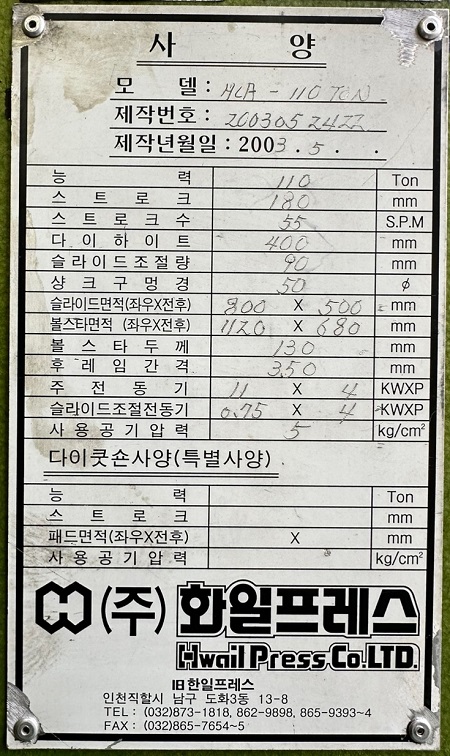 사 양
모 델 : HLA - 110 TON
제작번호 : 20030524
제작년월일 : 2003 . 5 . .
능 력 110 Ton
스 트 로 크 180 mm
스 트 로 크 수 55 S.P.M
다 이 하 이 트 400 mm
슬 라 이 드 조 절 량 90 mm
샹 크 구 멍 경 50 ø
슬라이드면적(좌우X전후) 800 X 500 mm
볼스타면적 (좌우X전후) 1120 X 680 mm
볼 스 타 두 께 130 mm
후 레 임 간 격 350 mm
주 전 동 기 11 X 4 KWXP
슬라이드조절전동기 0.75 X 4 KWXP
사 용 공 기 압 력 5 kg/cm²
다이쿳숀사양(특별사양)
능 력 Ton
스 트 로 크 mm
패드면적(좌우X전후) X mm
사 용 공 기 압 력 kg/cm²
(주) 화일프레스
Hwail Press Co.LTD.
旧 한일프레스
인천직할시 남구 도화3동 13-8
TEL : (032)873-1818, 862-9898, 865-9393~4
FAX : (032)865-7654~5